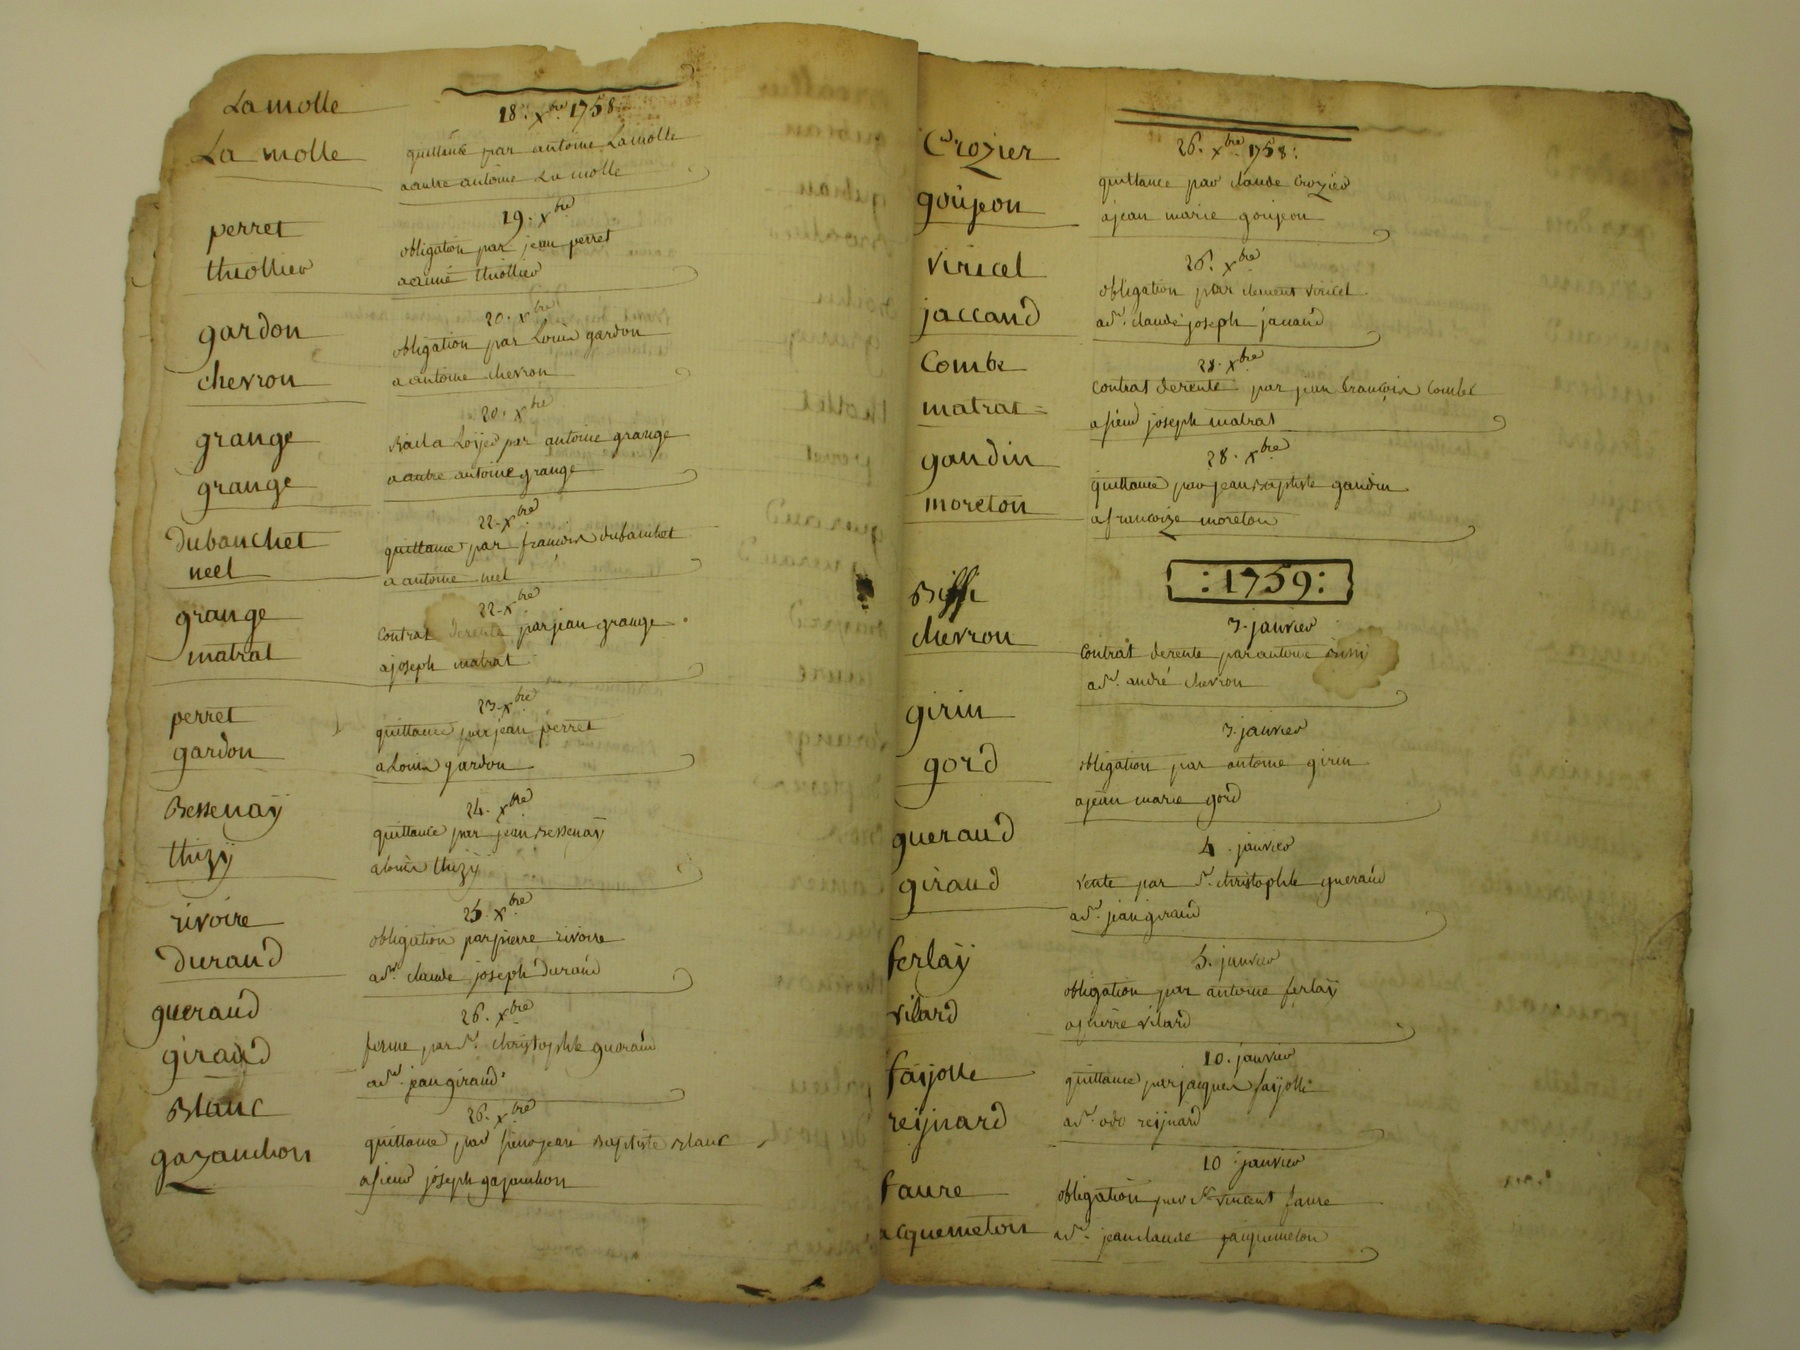 La molle
La molle
18. xbre 1758
quittance par antoine La molle
a autre antoine La molle
perret
thiollier
19. xbre
obligation par jean perret
a aimé thiollier
gardon
chevron
20. xbre
obligation par Louis gardon
a antoine chevron
grange
grange
20. xbre
Bail a Loyer par antoine grange
a autre antoine grange
dubanchet
neel
22. xbre
quittance par francois dubanchet
a antoine neel
grange
matrat
22. xbre
contrat de rente par jean grange
a joseph matrat
perret
gardon
23. xbre
quittance par jean perret
a Louis gardon
Bessenaÿ
thizÿ
24. xbre
quittance par jean Bessenaÿ
a louis thizÿ
rivoire
durand
25. xbre
obligation par pierre rivoire
a Sr. claude joseph durand
gueraud
giraud
26. xbre
ferme par Sr. christophle gueraud
a Sr. jean giraud
Blanc
gazanchon
26. xbre
quittance par sieur jean Baptiste Blanc
a sieur joseph gazanchon
Crozier
goujeon
26. xbre 1758:
quittance par claude Crozier
a jean marie goujeon
viricel
jaccand
26. xbre
obligation par clement viricel
a Sr. claude joseph jaccand
Combe
matrat =
28. xbre
contrat de rente par jean francois Combe
a sieur joseph matrat
gaudin
moreton
28. xbre
quittance par jean Baptiste gaudin
a francoize moreton
: 1759 :
Bissi
chevron
3. janvier
contrat de rente par antoine Bissi
a Sr. andré chevron
girin
gord
3. janvier
obligation par antoine girin
a jean marie gord
gueraud
giraud
4. janvier
vente par Sr. christophle gueraud
a Sr. jean giraud
ferlaÿ
vilard
5. janvier
obligation par antoine ferlaÿ
a pierre vilard
faÿolle
reijnard
10. janvier
quittance par jacques faÿolle
a Sr. odo reijnard
faure
acquemeton
10 janvier
obligation par Sr. vincent faure
a Sr. jean claude jacquemeton